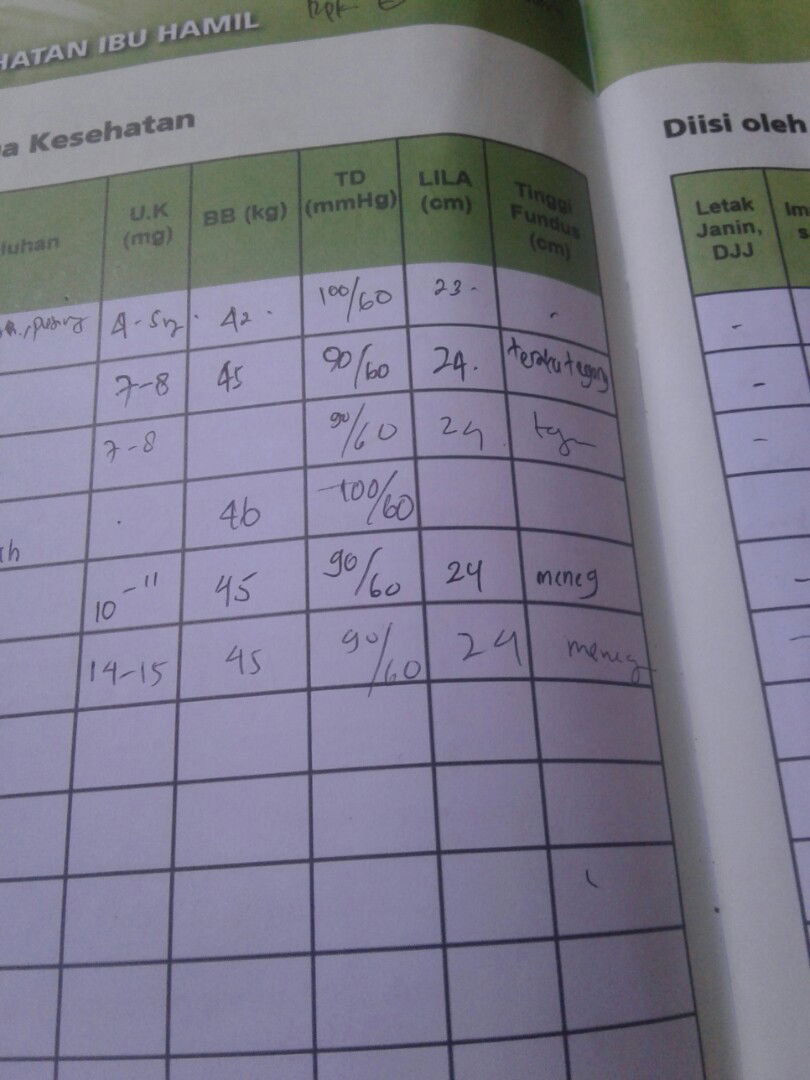 HATAN IBU HAMIL
a Kesehatan
Diisi oleh
luhan U.K (mg) BB (kg) TD (mmHg) LILA (cm) Tinggi Fundus (cm) Letak Janin, DJJ Im s
pusing 4 - 5 42 100/60 23 - -
7-8 45 90/60 24. -
7-8 90/60 24 -
46 100/60
10-11 45 90/60 24 meneg
14-15 45 90/60 24 meneg